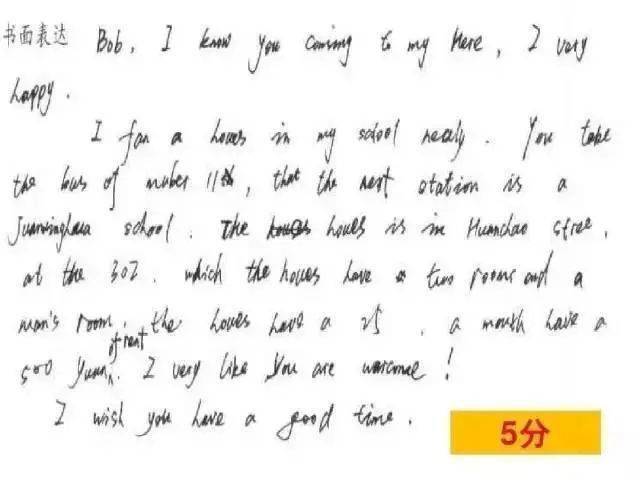 书面表达 Bob, I know you coming to my Here, I very
happy.
I fan a houes in my school nearly. You take
the bus of nuber 11th, that the next station is a
school. The houes is in Huanchao stree,
at the 302. which the houes have a two rooms and a
man's room, the houes have a 25, a month have a
500 Yuan of rent. I very like you are warcome!
I wish you have a good time.
5分